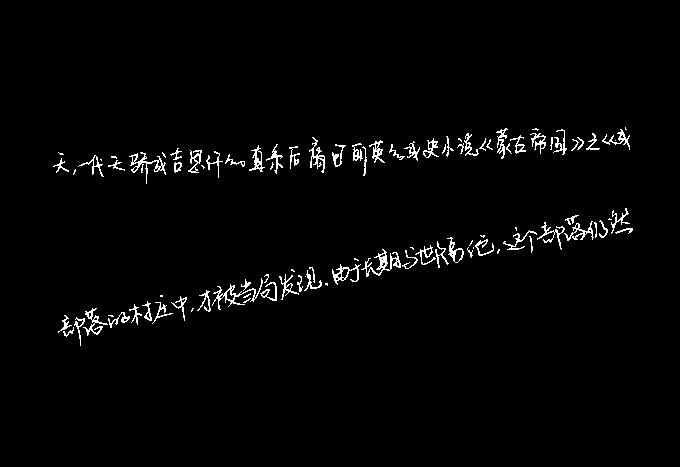 天,一代天骄成吉思汗的直系后裔包丽英的历史小说《蒙古帝国》之《成
部落的村庄中,才被当局发现.由于长期与世隔绝,这个部落仍然